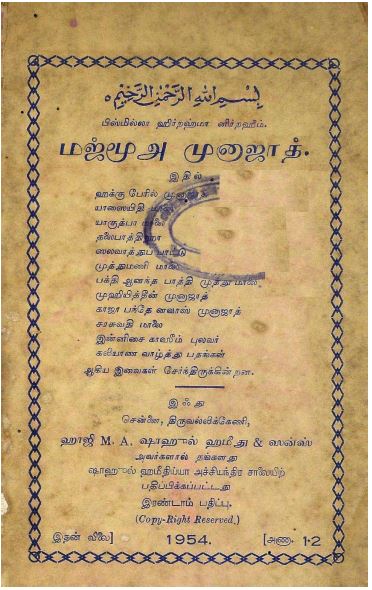 بِسْمِ اللهِ الرَّحْمٰنِ الرَّحِيْمِ
பிஸ்மில்லா ஹிர்றஹ்மா னிர்றஹீம்.
மஜ்மூஅ முனாஜாத்.
இதில்
ஹக்கு பேரில் முனாஜாத்
யாஸையிதி மாலை
யாகுத்பா மாலை
தலைபாத்திஹா
ஸலவாத்துப் பாட்டு
முத்துமணி மாலை
பக்தி ஆனந்த பாத்தி முத்து மாலை
முஹியித்தீன் முனாஜாத்
காஜா பந்தே னவாஸ் முனாஜாத்
சரசுவதி மாலை
இன்னிசை காஸிம் புலவர்
கலியாண வாழ்த்து பதங்கள்
ஆகிய இவைகள் சேர்ந்திருக்கின்றன.
இஃது
சென்னை, திருவல்லிக்கேணி,
ஹாஜி M. A. ஷாஹுல் ஹமீது & ஸன்ஸ்
அவர்களால் தங்களது
ஷாஹுல் ஹமீதிய்யா அச்சியந்திர சாலையிற்
பதிப்பிக்கப்பட்டது
இரண்டாம் பதிப்பு.
(Copy-Right Reserved,)
இதன் விலை] 1954. [அணா. 1-2